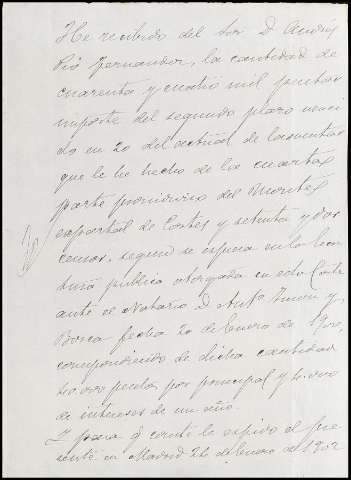 He recibido del Sor D. Andres
Pio Fernandez, la cantidad de
cuarenta y cuatro mil pesetas
importe del segundo plazo venci
do en 20 del actual de la venta
que le he hecho de la cuarta
parte proindiviso del Monte
de Cortes y setenta y dos
censos, segun se expresa en la Escri
tura publica otorgada en esta Corte
ante el Notario D. Anto Turon y
Bosca fecha 20 de Enero de 1900,
correspondiendo de dicha cantidad
40.000 pesetas por principal y 4.000
de intereses de un año.
Y para q. conste le expido el pre
sente en Madrid 21 de Enero de 1902